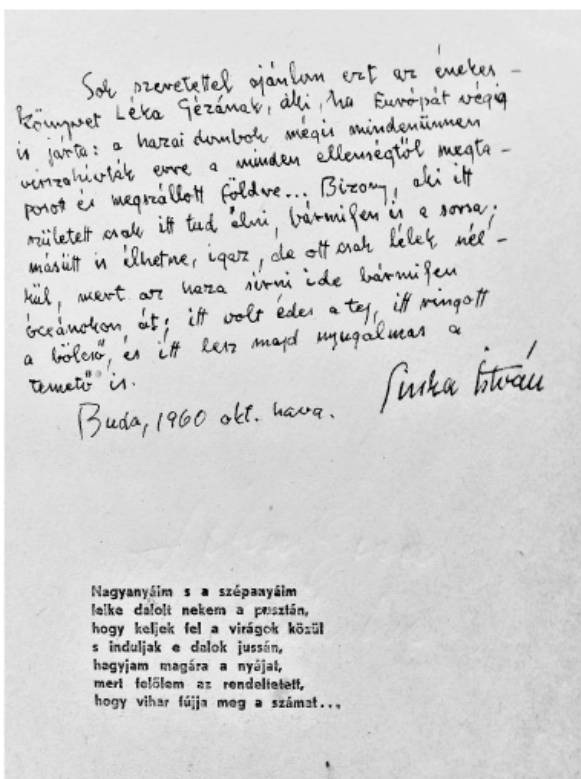 Sok szeretettel ajánlom ezt az énekes-
könyvet Léka Gézának, aki, ha Európát végig
is járta: a hazai dombok mégis mindenünnen
visszahívták erre a minden ellenségtől megta-
posott és megszállott földre... Bizony, aki itt
született csak itt tud élni, bármilyen is a sorsa;
másütt is élhetne, igaz, de ott csak lélek nél-
kül, mert az haza sírni ide bármilyen
óceánokon át; itt volt édes a tej, itt ringott
a bölcső, és itt lesz majd nyugalmas a
temető is.
Buda, 1960 okt. hava.
Sinka István
Nagyanyáim s a szépanyáim
lelke dalolt nekem a pusztán,
hogy keljek fel a virágok közül
s induljak e dalok jussán,
hagyjam magára a nyájat,
mert felőlem az rendeltetett,
hogy vihar fújja meg a számat...